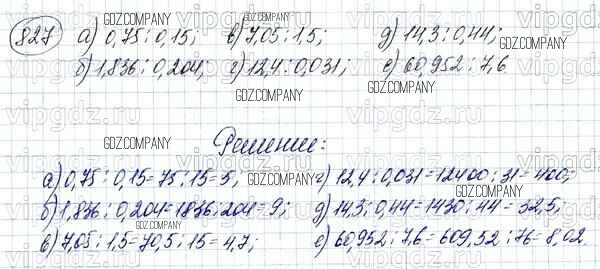 827 а) 0,75 : 0,15; в) 7,05 : 1,5; д) 14,3 : 0,44;
б) 1,836 : 0,204; г) 12,4 : 0,031; е) 60,952 : 7,6
Решение:
а) 0,75 : 0,15 = 75 : 15 = 5; г) 12,4 : 0,031 = 12400 : 31 = 400;
б) 1,836 : 0,204 = 1836 : 204 = 9; д) 14,3 : 0,44 = 1430 : 44 = 32,5;
в) 7,05 : 1,5 = 70,5 : 15 = 4,7; е) 60,952 : 7,6 = 609,52 : 76 = 8,02
GDZ.COMPANY
GDZ.COMPANY
GDZ.COMPANY
GDZ.COMPANY
GDZ.COMPANY
GDZ.COMPANY
GDZ.COMPANY
GDZ.COMPANY
GDZ.COMPANY
GDZ.COMPANY
GDZ.COMPANY
vipgdz.ru
vipgdz.ru
vipgdz.ru